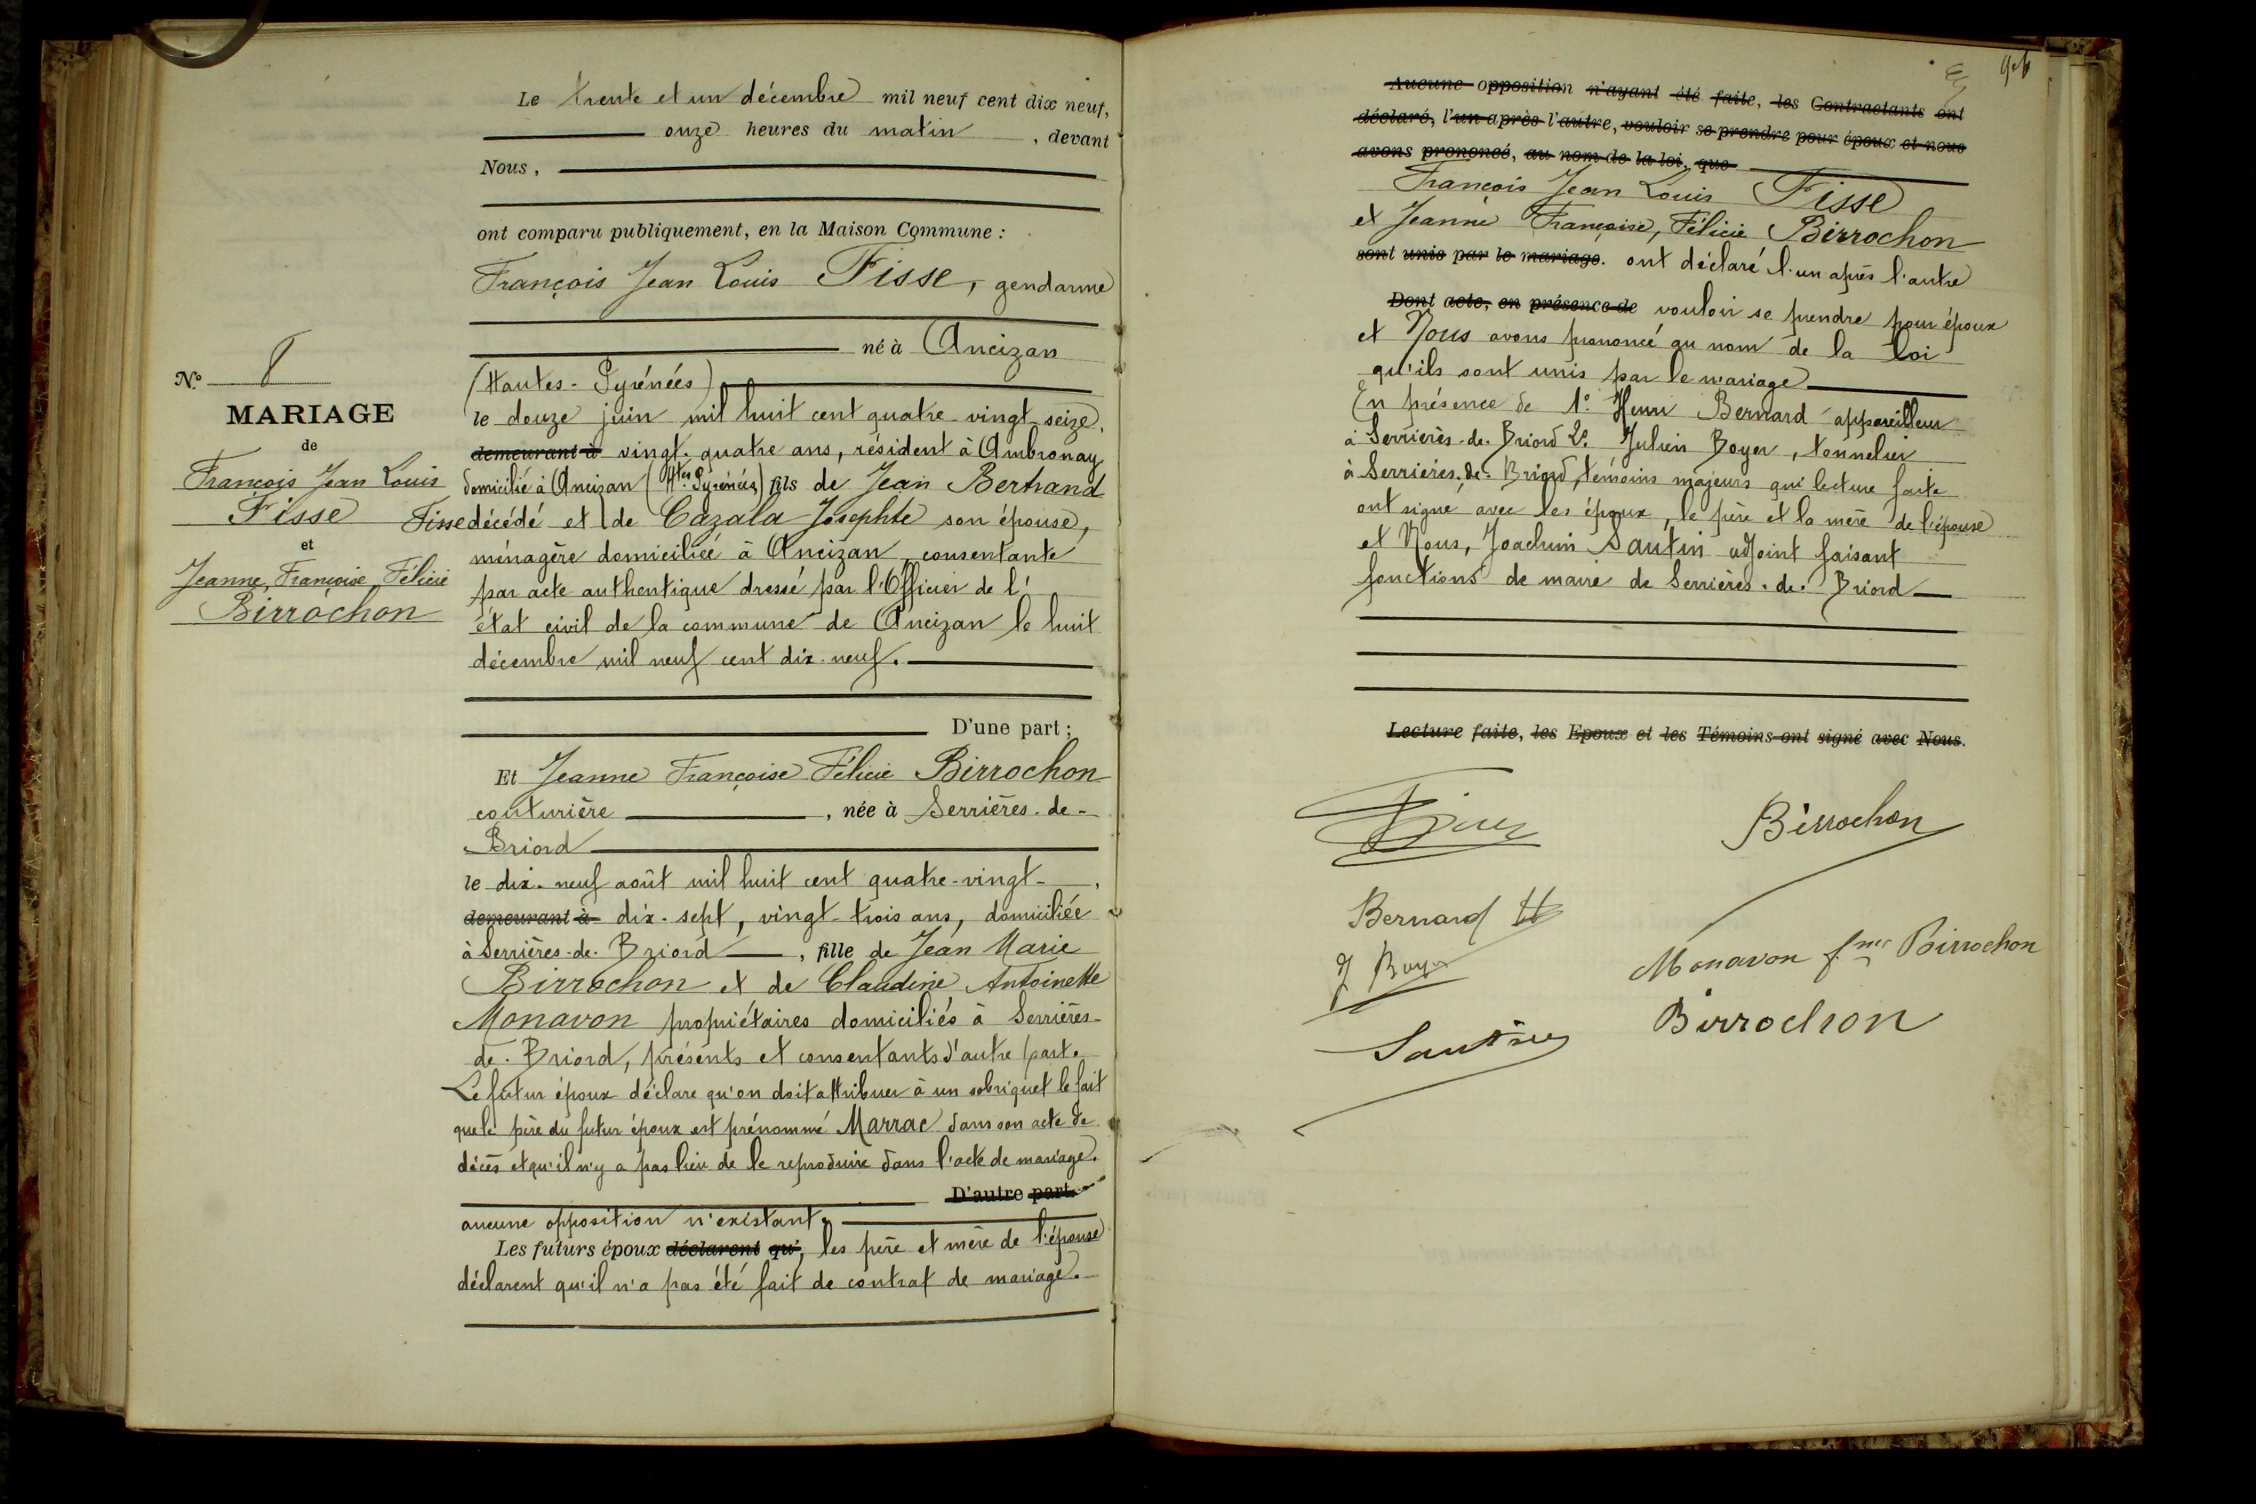 Le trente et un décembre mil neuf cent dix neuf,
onze heures du matin, devant
Nous,
ont comparu publiquement, en la Maison Commune :
François Jean Louis Fisse, gendarme
né à Ancizan
(Hautes-Pyrénées)
le douze juin mil huit cent quatre-vingt-seize,
demeurant à vingt-quatre ans, résident à Ambronay
domicilié à Ancizan (Htes Pyrénées) fils de Jean Bertrand
Fisse décédé et de Cazala Josephte son épouse,
ménagère domiciliée à Ancizan, consentante
par acte authentique dressé par l'Officier de l'
état civil de la commune de Ancizan le huit
décembre mil neuf cent dix-neuf.
D'une part ;
Et Jeanne Françoise Félicie Birrochon
couturière, née à Serrières-de-
Briord
le dix-neuf août mil huit cent quatre-vingt-,
demeurant à dix-sept, vingt-trois ans, domiciliée
à Serrières-de-Briord, fille de Jean Marie
Birrochon et de Claudine Antoinette
Monavon propriétaires domiciliés à Serrières-
de-Briord, présents et consentants d'autre part.
Le futur époux déclare qu'on doit attribuer à un sobriquet le fait
que le père du futur époux est prénommé Marrac dans son acte de
décès et qu'il n'y a pas lieu de le reproduire dans l'acte de mariage.
D'autre part.
aucune opposition n'existant.
Les futurs époux déclarent qu', les père et mère de l'épouse
déclarent qu'il n'a pas été fait de contrat de mariage.
N° 8
MARIAGE
de
François Jean Louis
Fisse
et
Jeanne, Françoise, Félicie
Birrochon
Aucune opposition n'ayant été faite, les Contractants ont
déclaré, l'un après l'autre, vouloir se prendre pour époux et nous
avons prononcé, au nom de la loi, que
François Jean Louis Fisse
et Jeanne Françoise, Félicie Birrochon
sont unis par le mariage. ont déclaré l'un après l'autre
Dont acte, en présence de vouloir se prendre pour époux
et Nous avons prononcé au nom de la Loi
qu'ils sont unis par le mariage
En présence de 1° Henri Bernard appareilleur
à Serrières-de-Briord 2° Julien Boyer, tonnelier
à Serrières-de-Briord, témoins majeurs qui lecture faite
ont signé avec les époux, le père et la mère de l'épouse
et Nous, Joachim Sautin adjoint faisant
fonctions de maire de Serrières-de-Briord
Lecture faite, les Epoux et les Témoins ont signé avec Nous.
Birrochon
Bernard H
J Boyer
Monavon fme Birrochon
Birrochon
Sautin